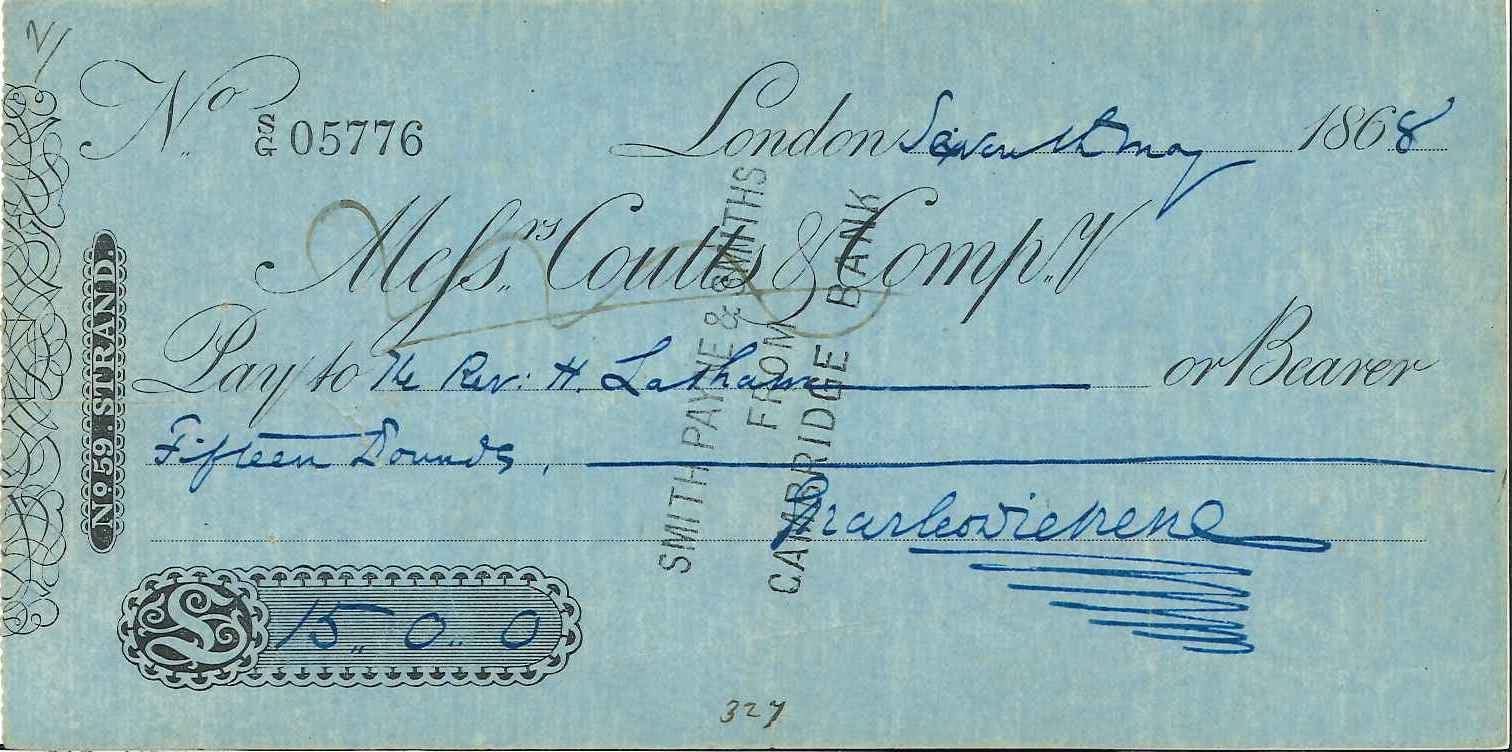 No S/G 05776
London Seventh May 1868
Messrs. Coutts & Compy.
Pay to the Rev: H. Latham or Bearer
Fifteen Pounds.
Charles Dickens
£ 15 „ 0 „ 0
No 59. STRAND.
SMITH PAYNE & SMITHS
FROM
CAMBRIDGE BANK
327